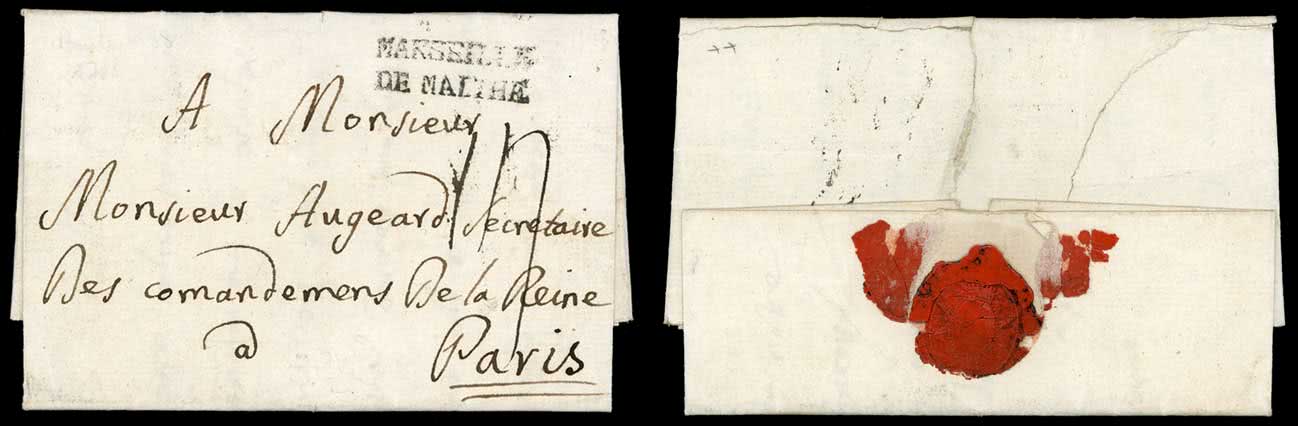 MARSEILLE
DE MALTHE
A Monsieur
Monsieur Augeard Secretaire
Des comandemens De la Reine
a Paris